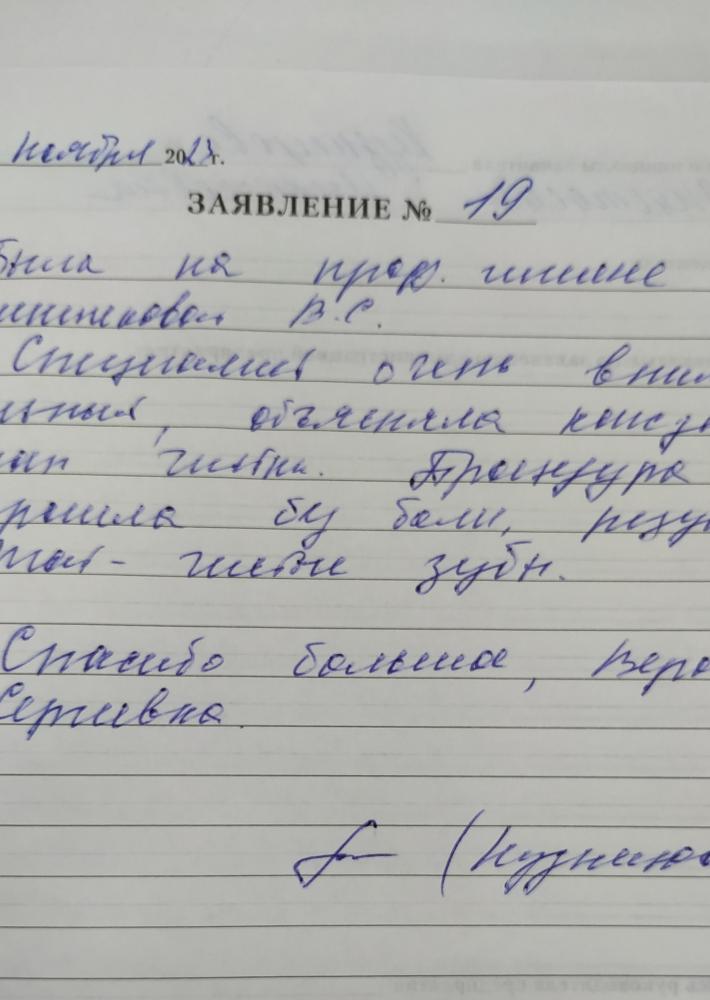 ноября 20 г.
ЗАЯВЛЕНИЕ № 19
была на проф. гигиене
В.С.
Специалист очень вним
ьный, объясняла кажд
ап чистки. Процедура
рошла без боли, резул
тат - чистые зубы.
Спасибо большое, Вера
Сергеевна.